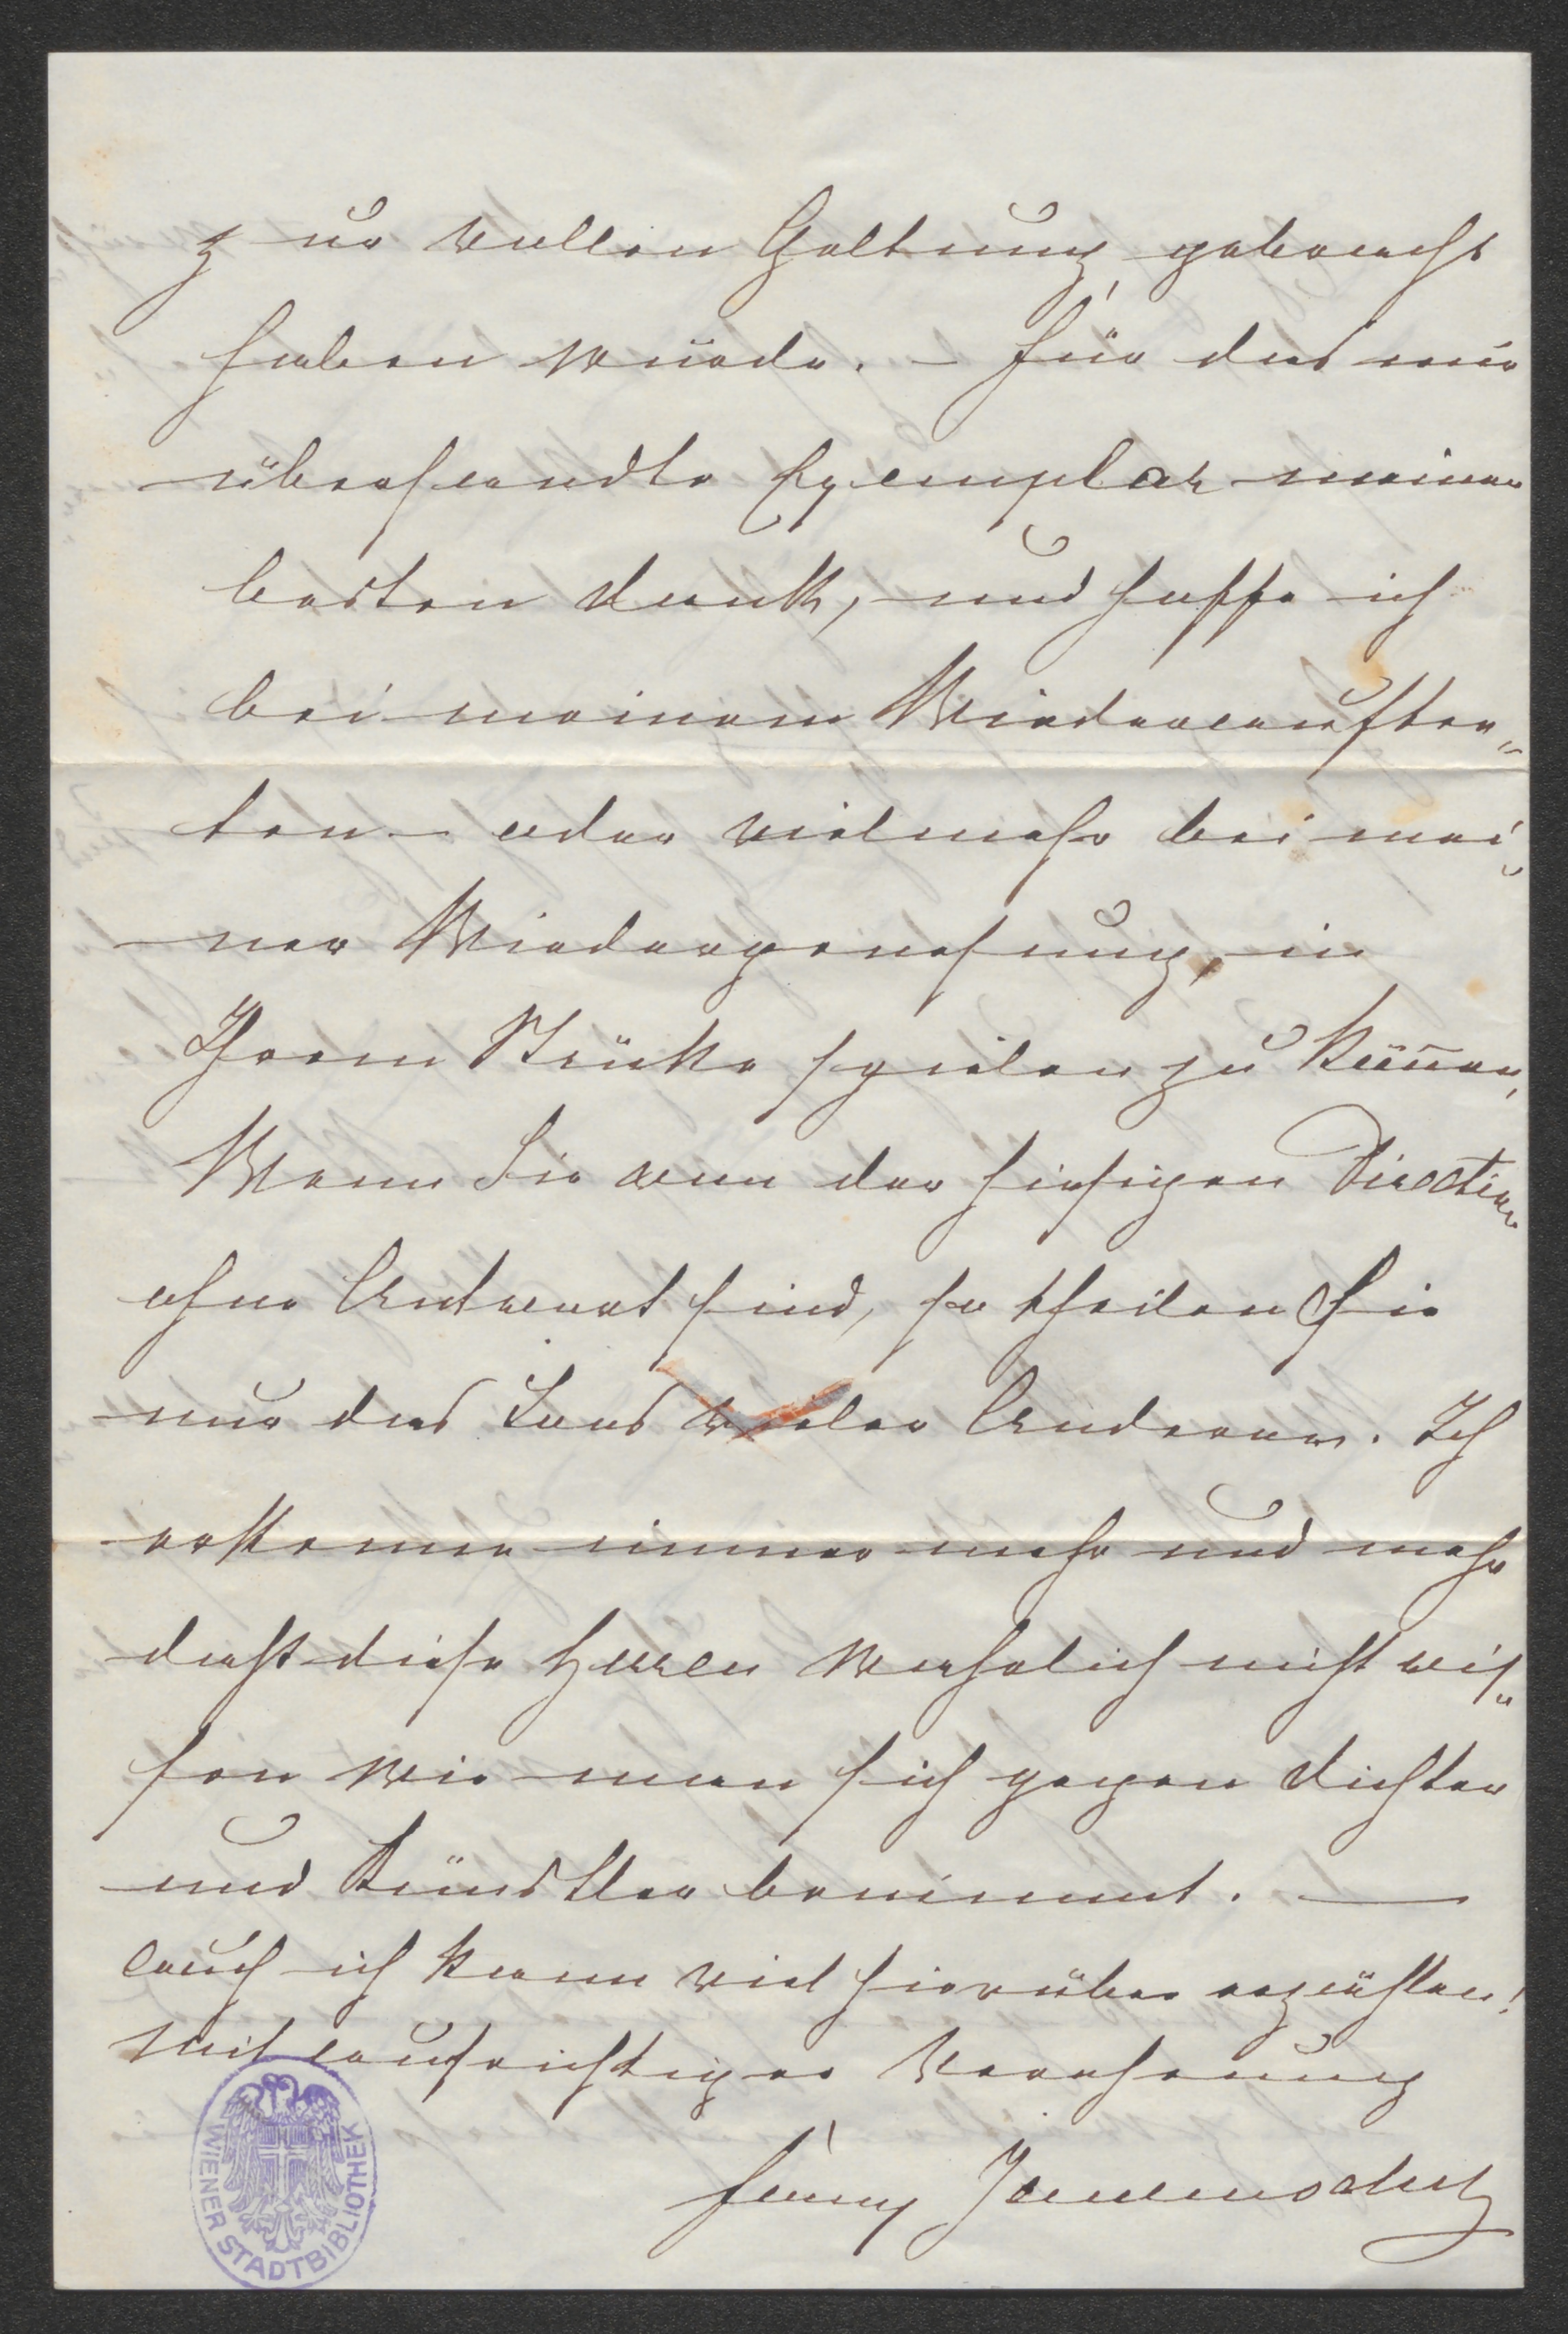 zur vollen Geltung gebracht
haben würde. – Für das mir
übersandte Exemplar meinen
besten Dank, und hoffe ich
bei meinem Wiederauftre„
ten – oder vielmehr bei mei„
ner Wiedergenesung, in
Ihrem Stücke spielen zu können,
Wenn Sie von der hiesigen Direction
ohne Antwort sind, so theilen Sie
nur das Loos vieler Anderen. Ich
erkenne immer mehr und mehr
daß diese Herren wahrlich nicht wis„
sen wie man sich gegen Dichter
und Künstler benimmt. —
auch ich kann viel hierüber erzählen!
Mit aufrichtiger Verehrung
Fanny Janauschek
WIENER STADTBIBLIOTHEK